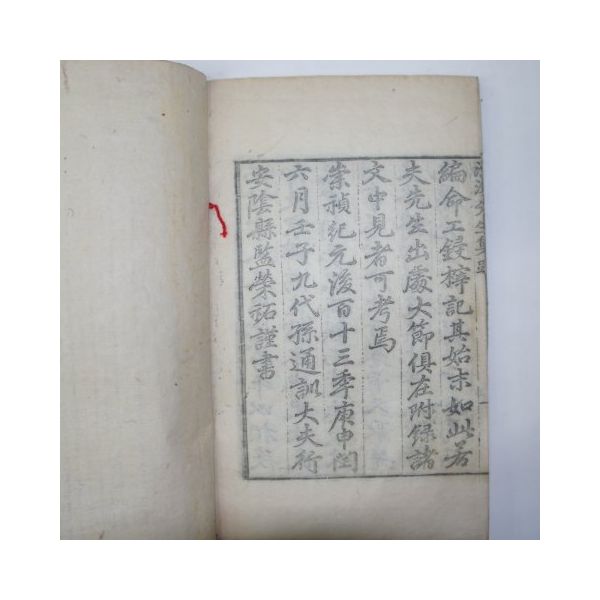 編命工鋟榟記其始末如此若
夫先生出處大節俱在附録諸
文中見者可考焉
崇禎紀元後百十三季庚申閏
六月壬子九代孫通訓大夫行
安陰縣監榮祏謹書